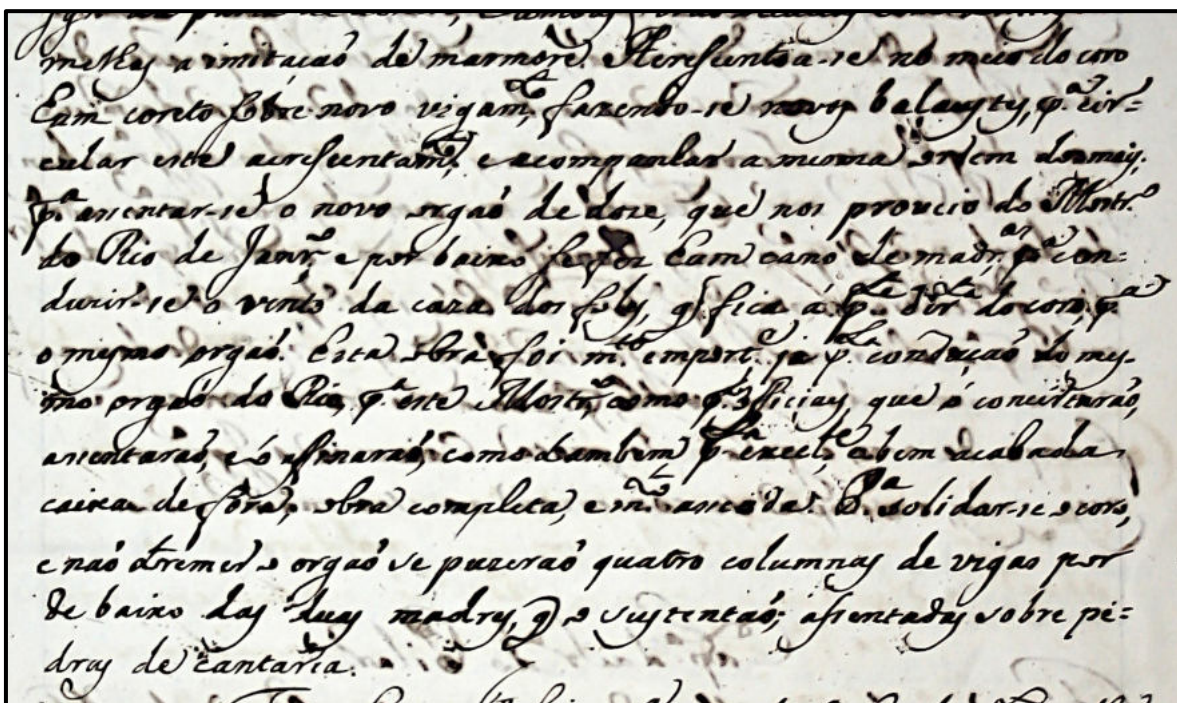 melhas a imitacaõ de marmore. Acresentou-se no meio do coro
hum coreto sobre novo vigam.to, fazendo-se novos balaustes, p.a cir=
cular este acresentam.to, e acompanhar a mesma ordem dos mais.
P.a asentar-se o novo orgaõ de doze, que nos proveio do Mostr.o
do Rio de Janr.o e por baixo se fez hum cano de madr.a p.a con=
duzir-se o vento da caza dos foles, q fica á p.te dir.ta do coro, p.a
o mesmo orgaõ. Esta obra foi m.to emport.e ja p.la conduçaõ do mes-
mo orgaõ do Rio, p.a este Mostr.o, como p.los oficiaes, que o concertaraõ,
asentaraõ, e o afinaraõ, como tambem p.la excel.te e bem acabada
caixa de fora, obra completa, e m.to aseada. P.a solidar-se o coro,
e naõ tremer o orgaõ se puzeraõ quatro columnas de vigas por
de baixo das duas madres, q o sustentaõ; assentadas sobre pe=
dras de cantaria.